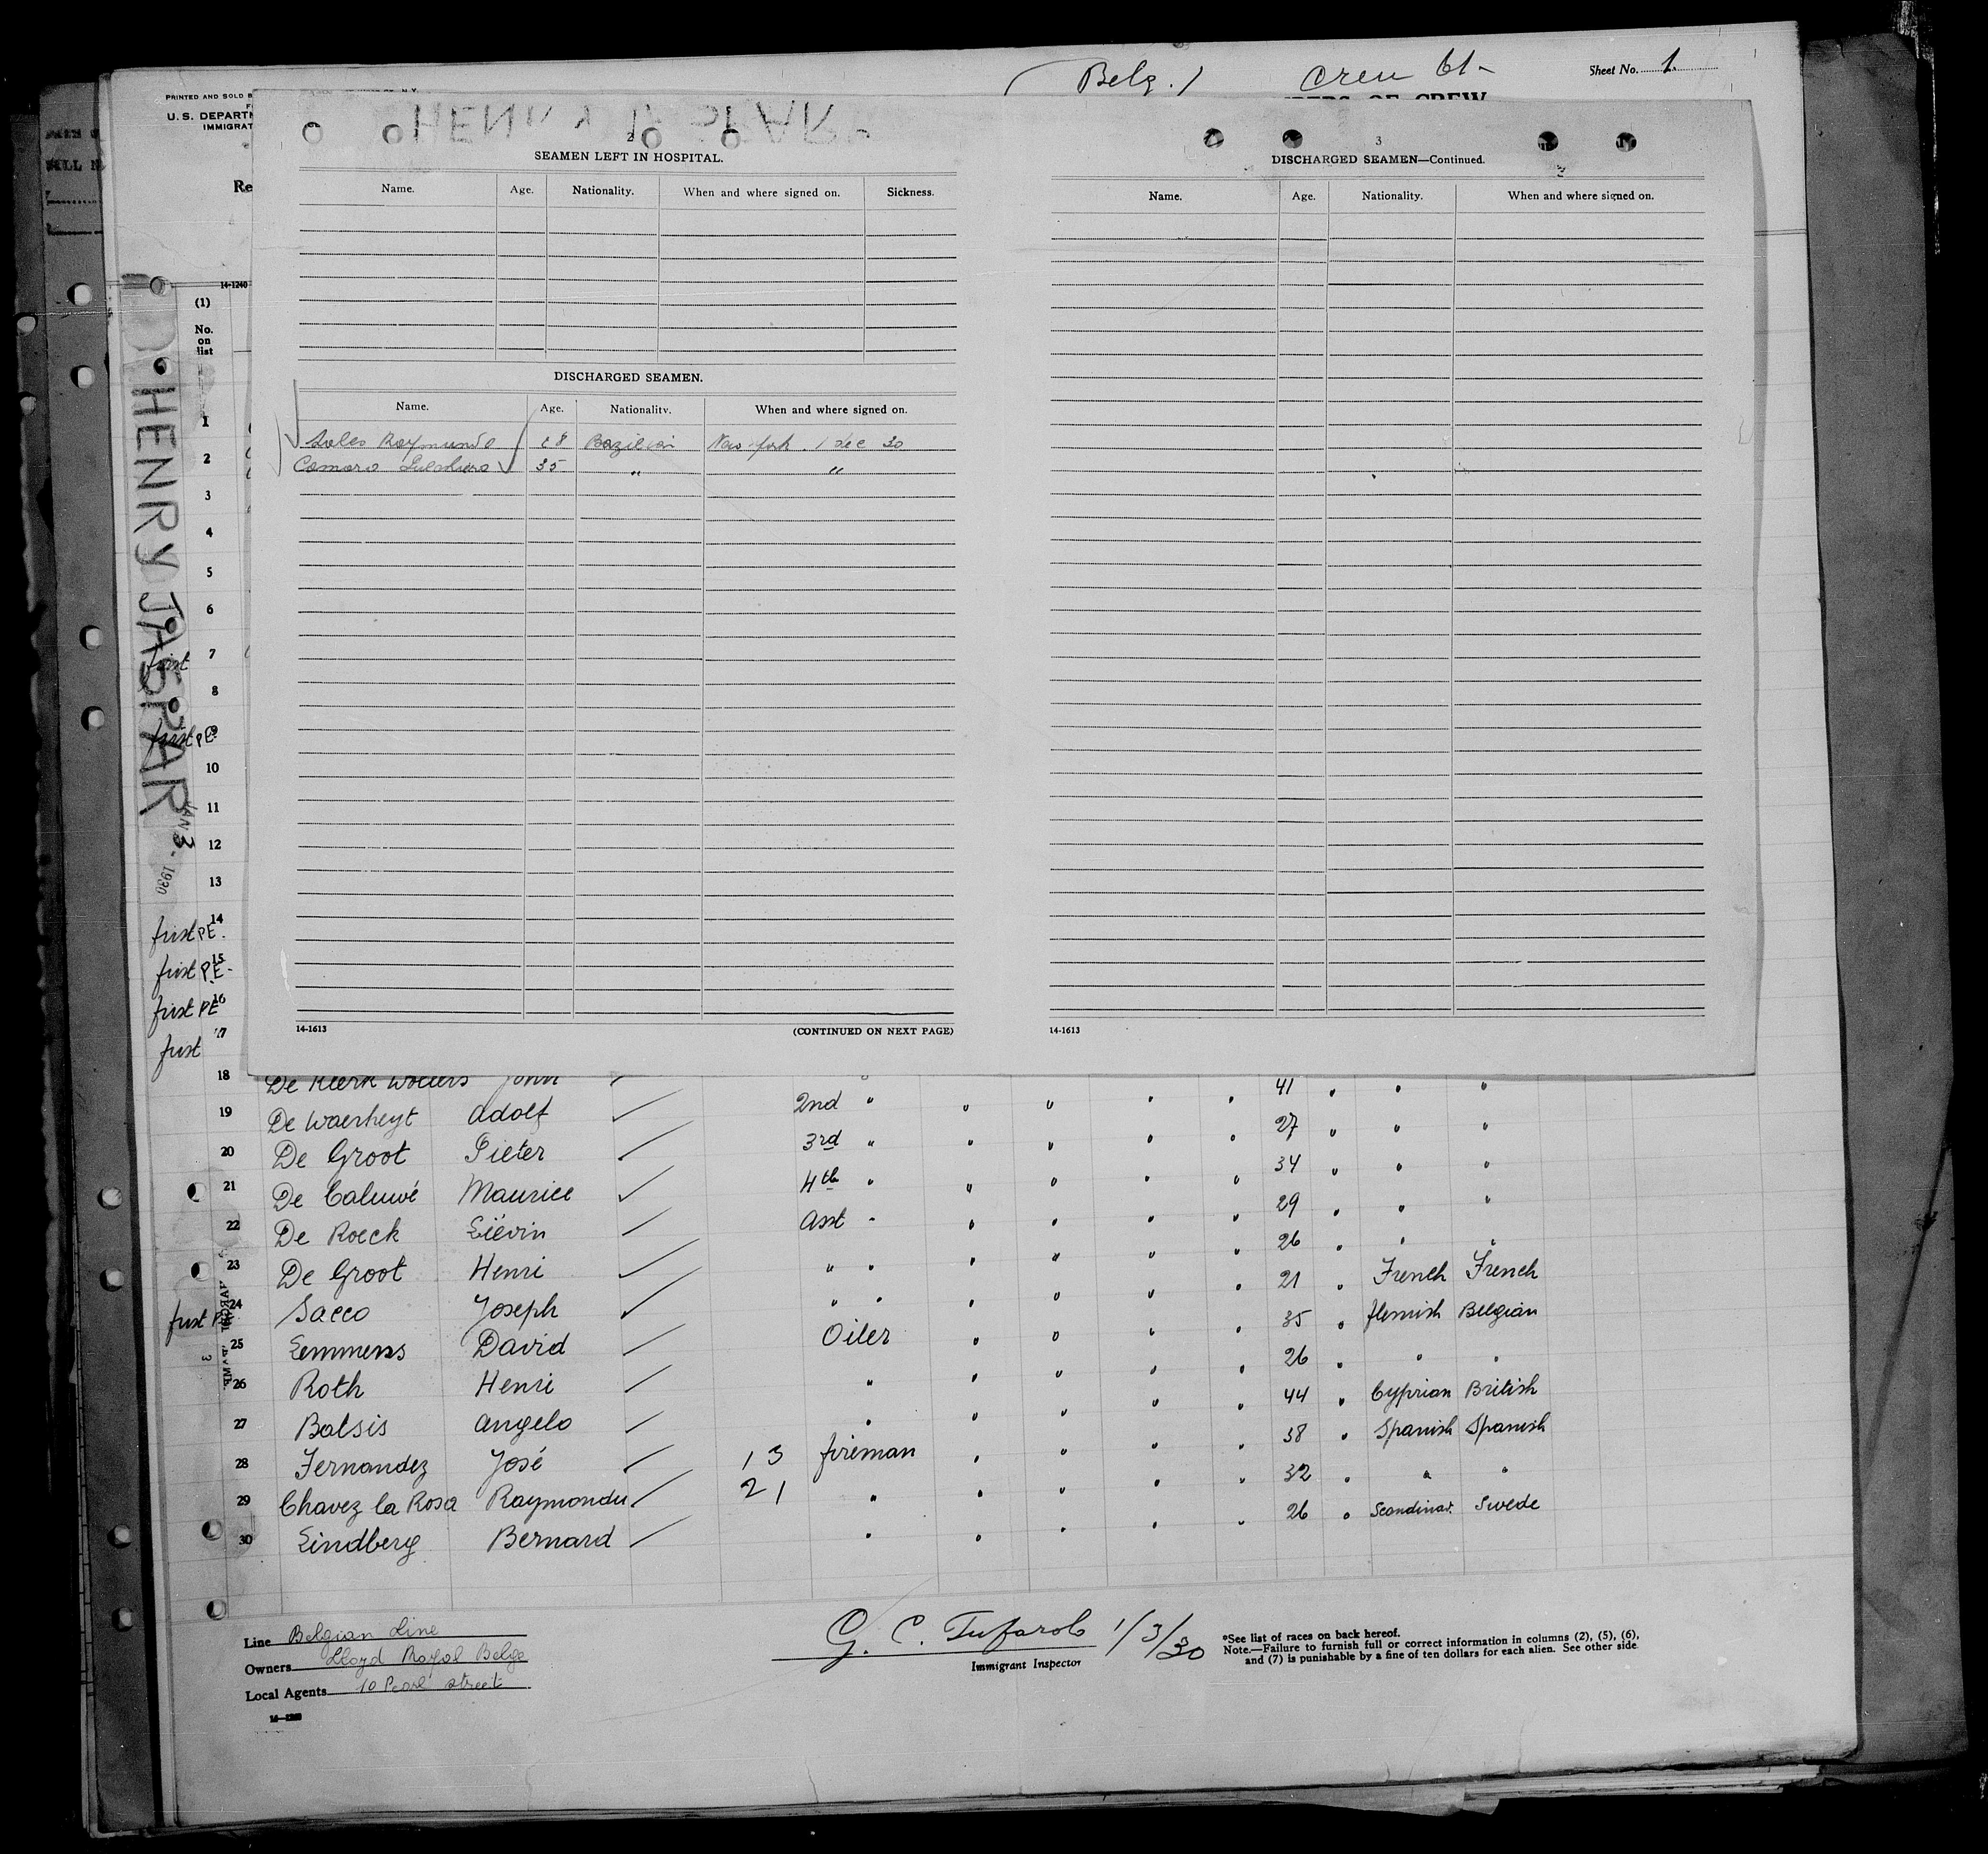 Belg. / Crew 61-
Sheet No. 1.
PRINTED AND SOLD B
U. S. DEPARTM
IMMIGRAT
Re
14-1240
(1)
No.
on
list
HENRY JASPAR
JAN 3 - 1930
2
SEAMEN LEFT IN HOSPITAL.
Name. Age. Nationality. When and where signed on. Sickness.
DISCHARGED SEAMEN.
Name. Age. Nationality. When and where signed on.
Sales Raymundo 28 Bazilian New York . 1 Dec 30
Camara 35 " "
14-1613 (CONTINUED ON NEXT PAGE)
3
DISCHARGED SEAMEN—Continued.
Name. Age. Nationality. When and where signed on.
14-1613
1
2
3
4
5
6
first 7
8
first PE 9
10
11
12
13
first PE. 14
first P.E- 15
first PE 16
first 17
18 De Klerk Wolters John ✓ "
19 De Waerheyt Adolf ✓ 2nd " " " " " 41 " " "
20 De Groot Pieter ✓ 3rd " " " " " 27 " " "
21 De Caluwé Maurice ✓ 4th " " " " " 34 " " "
22 De Roeck Liévin ✓ Asst " " " " " 29 " " "
23 De Groot Henri ✓ " " " " " " 26 " " "
first P. 24 Sacco Joseph ✓ " " " " " " 21 " French French
25 Lemmens David ✓ Oiler " " " " 35 " flemish Belgian
26 Roth Henri ✓ " " " " " 26 " " "
27 Balsis Angelo ✓ " " " " " 44 " Cyprian British
28 Fernandez José ✓ 13 fireman " " " " 38 " Spanish Spanish
29 Chavez la Rosa Raymondu ✓ 21 " " " " " 32 " " "
30 Lindberg Bernard ✓ " " " " " 26 " Scandinav. Swede
Line Belgian Line
Owners Lloyd Royal Belge
Local Agents 10 Pearl street
14-1240
G. C. Tufarolo 1/3/30
Immigrant Inspector
*See list of races on back hereof.
Note.—Failure to furnish full or correct information in columns (2), (5), (6),
and (7) is punishable by a fine of ten dollars for each alien. See other side